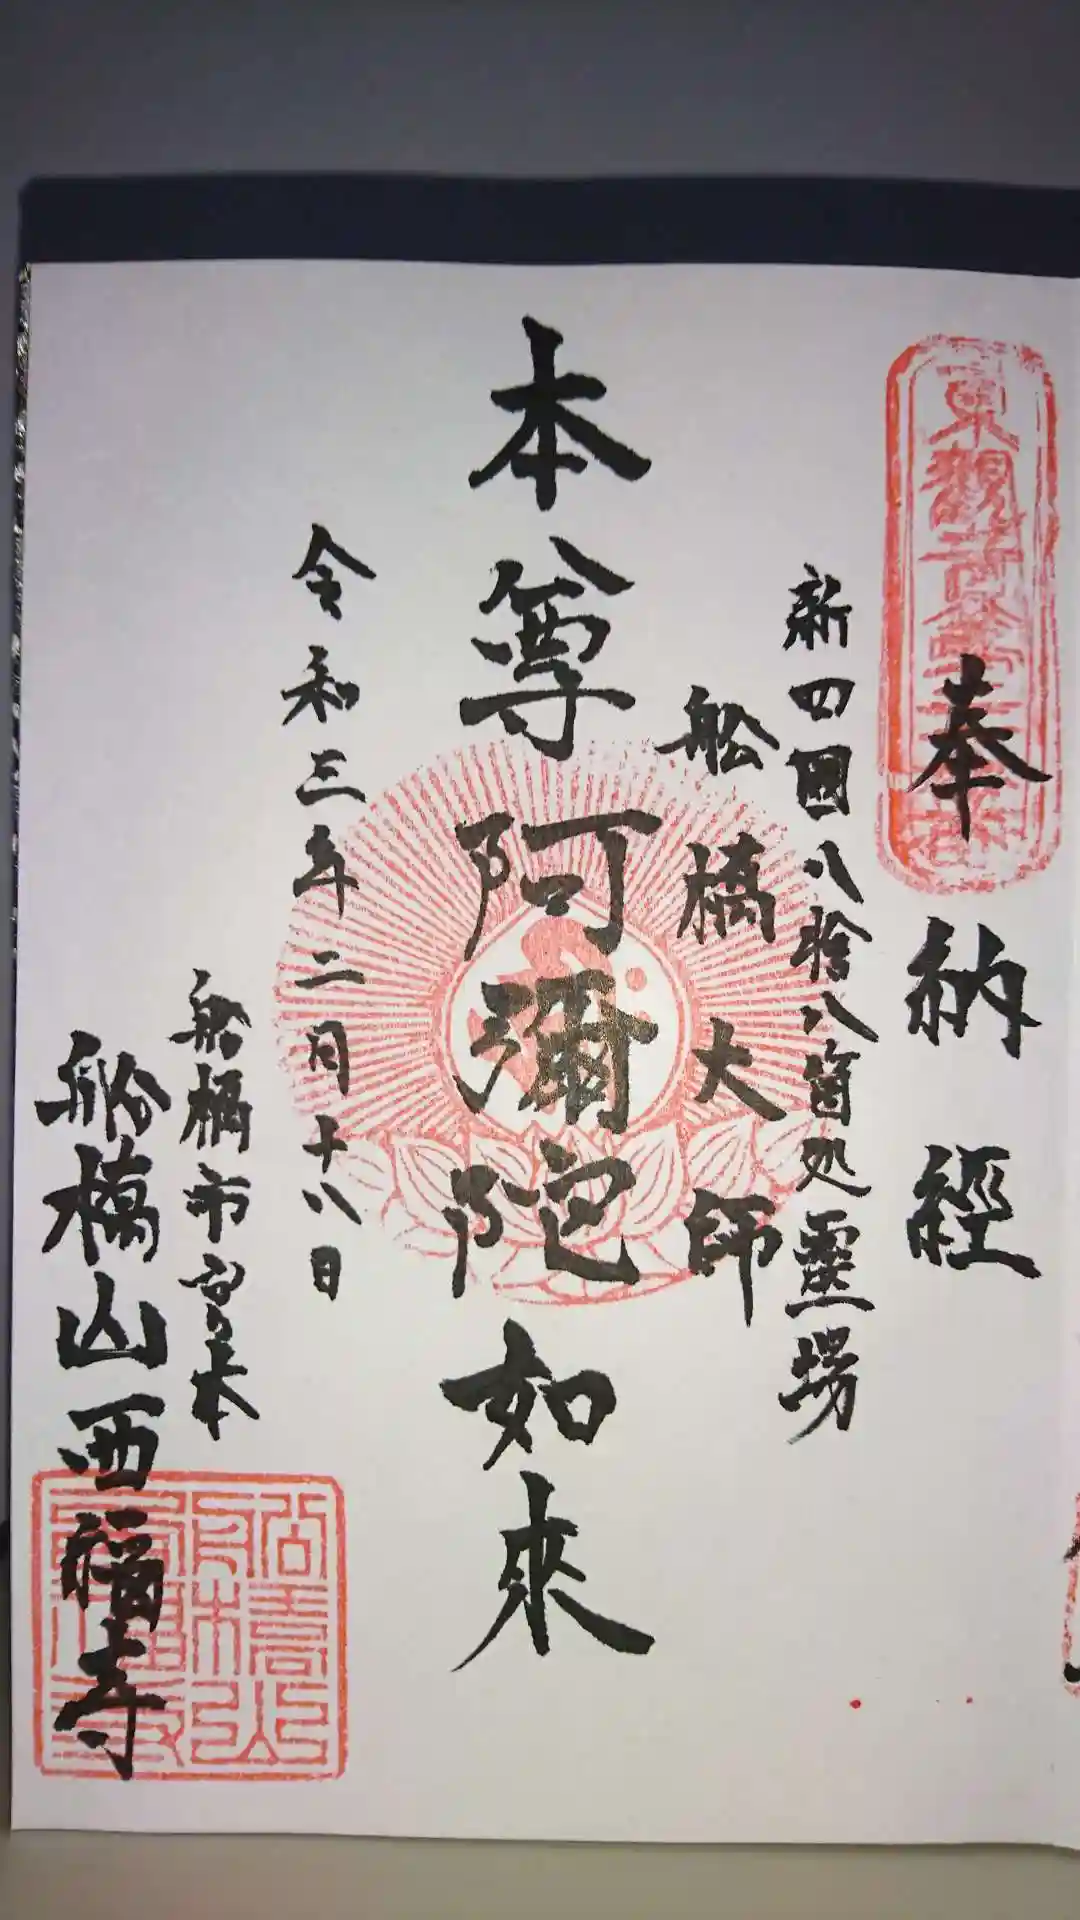 奉 納經
新四國八拾八箇処靈場
船橋大師
本尊阿彌陀如來
令和三年二月十八日
船橋市宮本
船橋山西福寺
船橋山西福寺